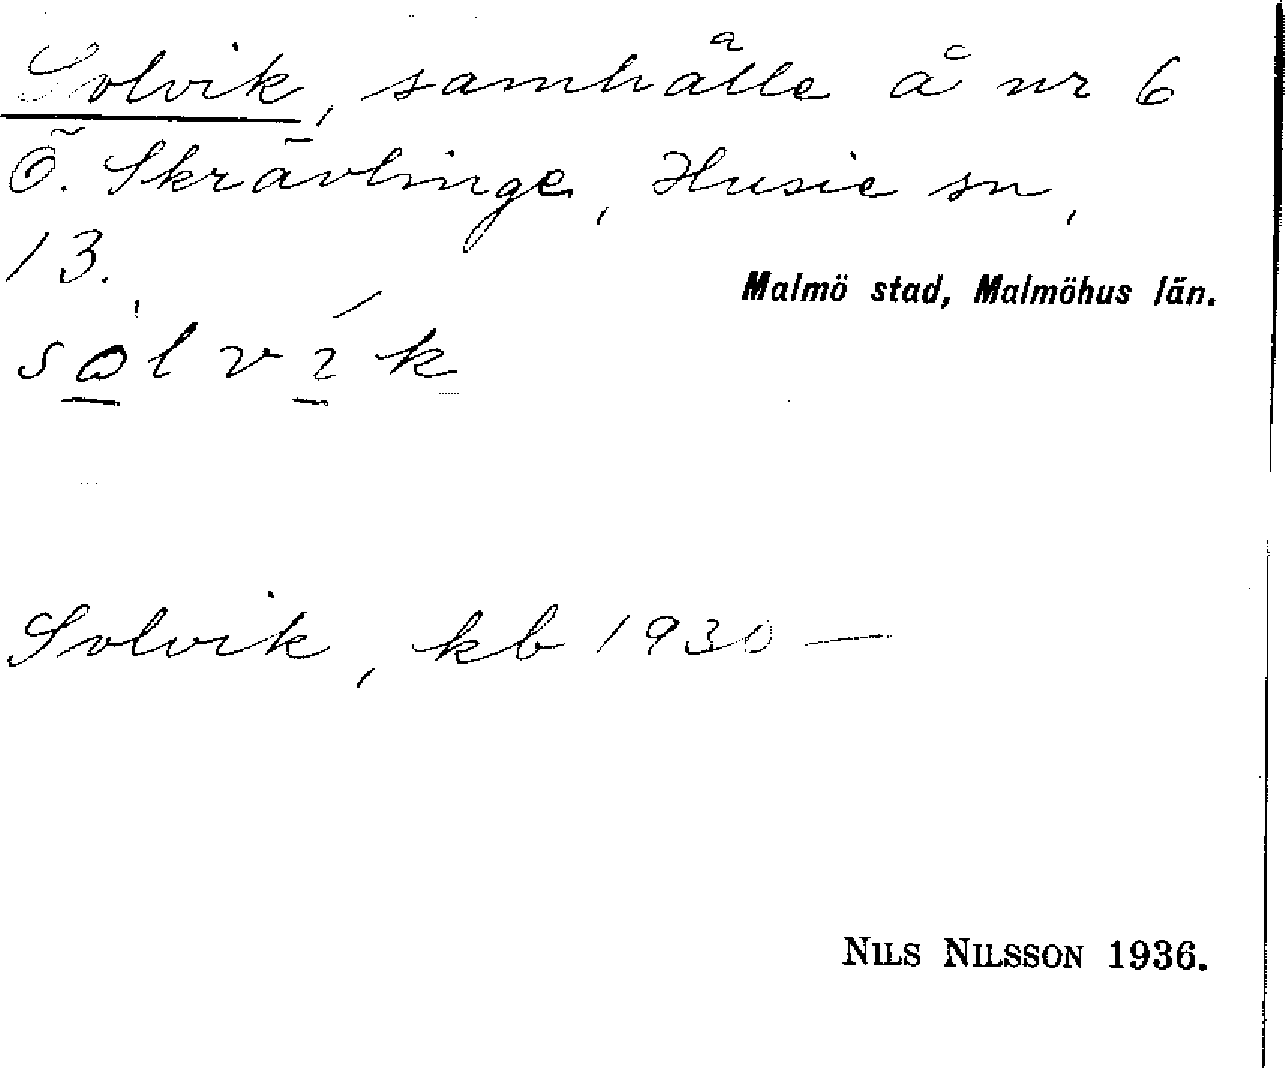 Solvik, samhälle å nr 6
Ö. Skrävlinge, Husie sn,
13.
Malmö stad, Malmöhus län.
sólvík
Solvik, kb 1930 —
NILS NILSSON 1936.